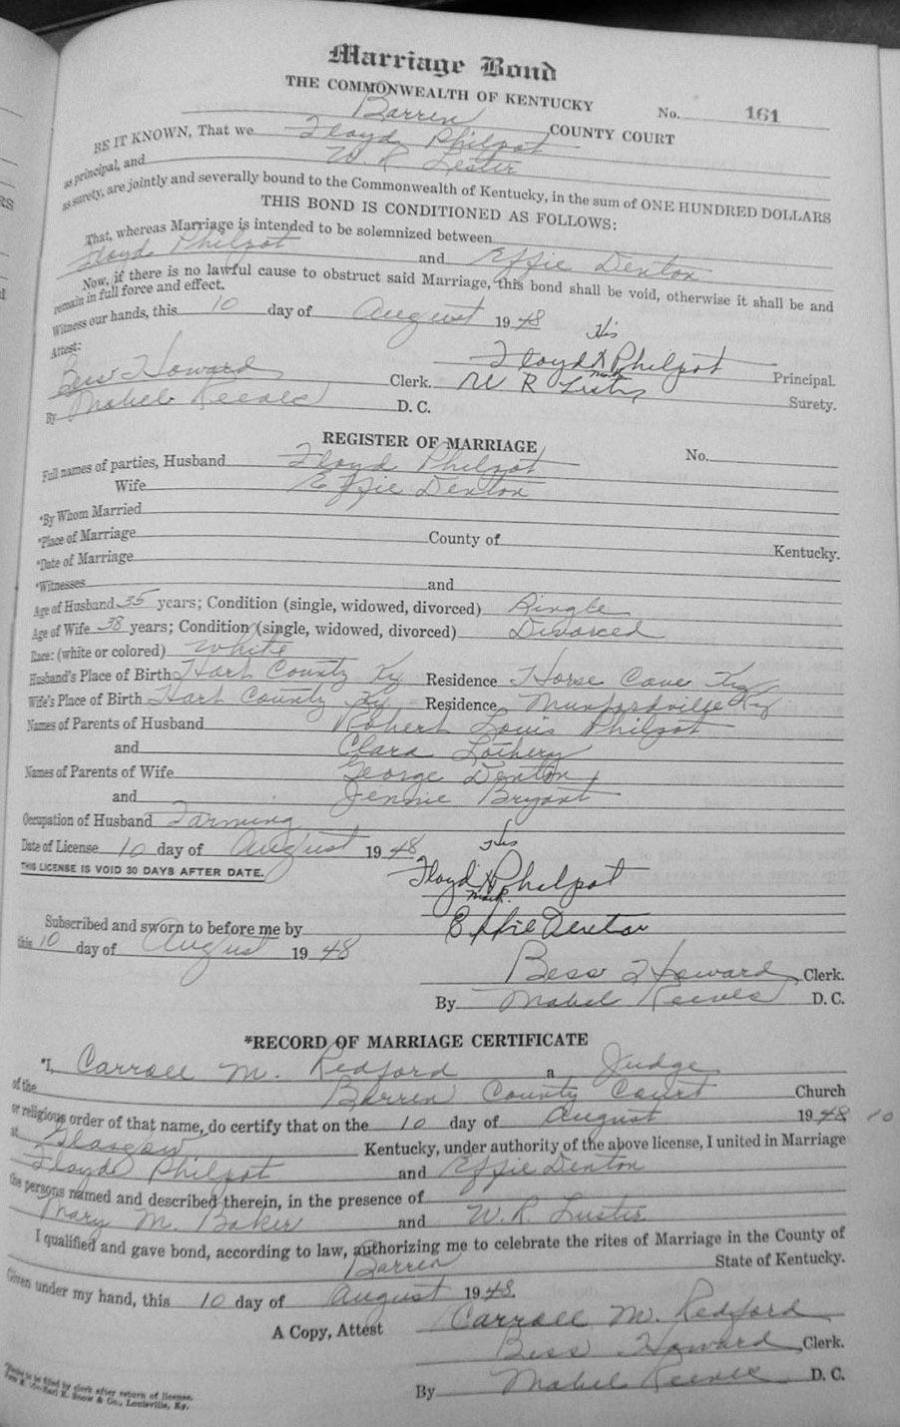 Marriage Bond
THE COMMONWEALTH OF KENTUCKY
No. 161
Barren COUNTY COURT
BE IT KNOWN, That we Floyd Philpot
as principal, and W. R. Lester
as surety, are jointly and severally bound to the Commonwealth of Kentucky, in the sum of ONE HUNDRED DOLLARS
THIS BOND IS CONDITIONED AS FOLLOWS:
That, whereas Marriage is intended to be solemnized between
Floyd Philpot and Effie Denton
Now, if there is no lawful cause to obstruct said Marriage, this bond shall be void, otherwise it shall be and
remain in full force and effect.
Witness our hands, this 10 day of August 1948
Attest:
His
Floyd X Philpot Principal.
mark
Bess Howard Clerk. W R Surety.
By Mabel Reeves D. C.
REGISTER OF MARRIAGE
No.
Full names of parties, Husband Floyd Philpot
Wife Effie Denton
*By Whom Married
*Place of Marriage County of Kentucky.
*Date of Marriage
*Witnesses and
Age of Husband 35 years; Condition (single, widowed, divorced) Single
Age of Wife 38 years; Condition (single, widowed, divorced) Divorced
Race: (white or colored) White
Husband's Place of Birth Hart County Ky Residence Horse Cave Ky
Wife's Place of Birth Hart County Ky Residence Munfordville Ky
Names of Parents of Husband Robert Louis Philpot
and Clara
Names of Parents of Wife George Denton
and Jennie Bryant
Occupation of Husband Farming
Date of License 10 day of August 1948
THIS LICENSE IS VOID 30 DAYS AFTER DATE.
His
Floyd X Philpot
mark
Effie Denton
Subscribed and sworn to before me by
this 10 day of August 1948
Bess Howard Clerk.
By Mabel Reeves D. C.
*RECORD OF MARRIAGE CERTIFICATE
*I, Carroll M. Redford a Judge
of the Barren County Court Church
or religious order of that name, do certify that on the 10 day of August 1948 10
at Glasgow Kentucky, under authority of the above license, I united in Marriage
Floyd Philpot and Effie Denton
the persons named and described therein, in the presence of
Mary M. Baker and W. R.
I qualified and gave bond, according to law, authorizing me to celebrate the rites of Marriage in the County of
Barren State of Kentucky.
Given under my hand, this 10 day of August 1948.
Carroll M. Redford
A Copy, Attest Bess Howard Clerk.
By Mabel Reeves D. C.
to be filled by clerk after return of license.
& Co., Louisville, Ky.